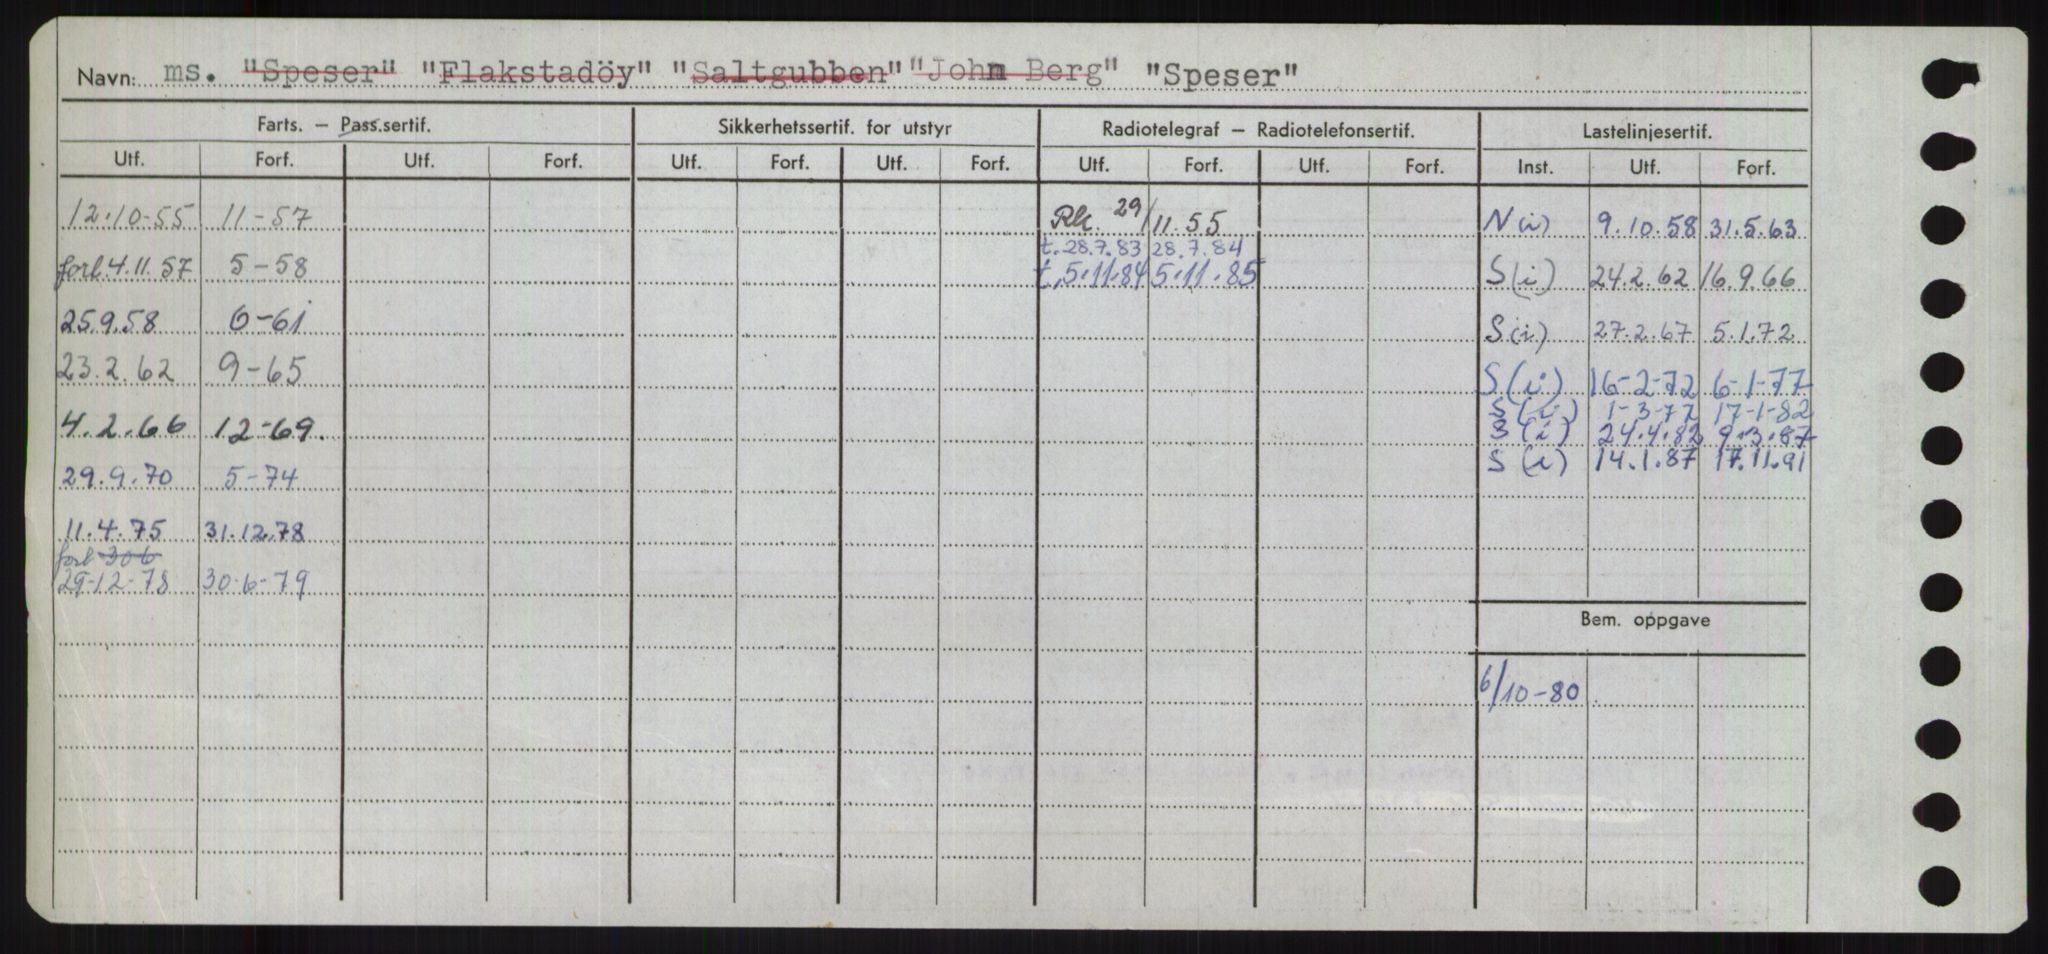 Navn: ms. "Speser" "Flakstadöy" "Saltgubben" "John Berg" "Speser"
Farts. — Pass.sertif. Sikkerhetssertif. for utstyr Radiotelegraf — Radiotelefonsertif. Lastelinjesertif.
Utf. Forf. Utf. Forf. Utf. Forf. Utf. Forf. Utf. Forf. Utf. Forf. Inst. Utf. Forf.
12.10-55 11-57 Rk. 29/11.55 N(i) 9.10.58 31.5.63
t. 28.7.83 28.7.84
forl. 4.11.57 5-58 t. 5.11.84 5.11.85 S(i) 24.2.62 16.9.66
25.9.58 6-61 S(i) 27.2.67 5.1.72
23.2.62 9-65 S(i) 16-2-72 6-1-77
S(i) 1-3-77 17-1-82
4.2.66 12-69. S(i) 24.4.82 9.3.87
29.9.70 5-74 S(i) 14.1.87 17.11.91
11.4.75 31.12.78
forl 30 6
29-12-78 30-6-79
Bem. oppgave
6/10-80